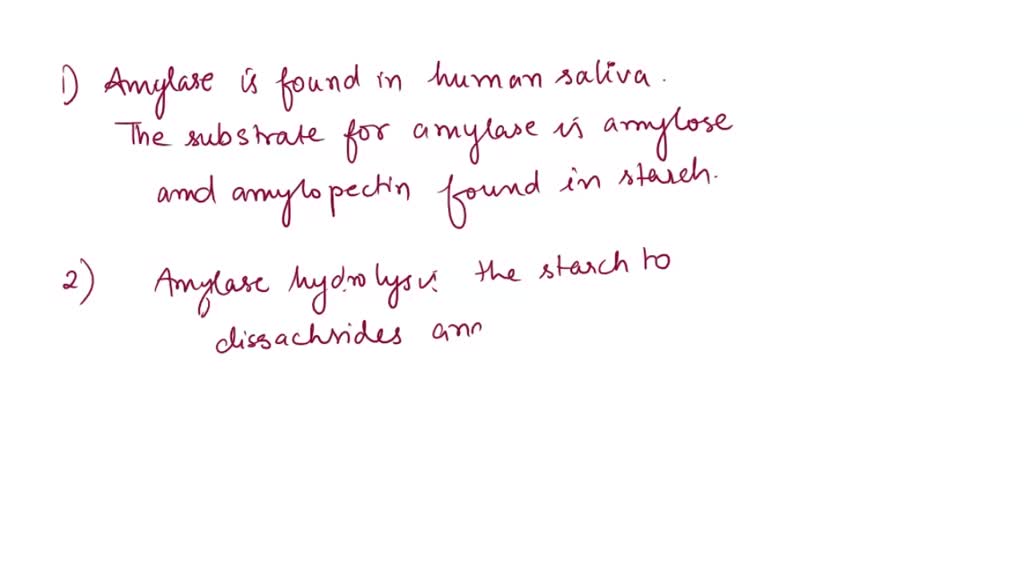 1) Amylase is found in human saliva.
The substrate for amylase is amylose
and amylopectin found in starch.
2) Amylase hydrolysis the starch to
dissachrides ann